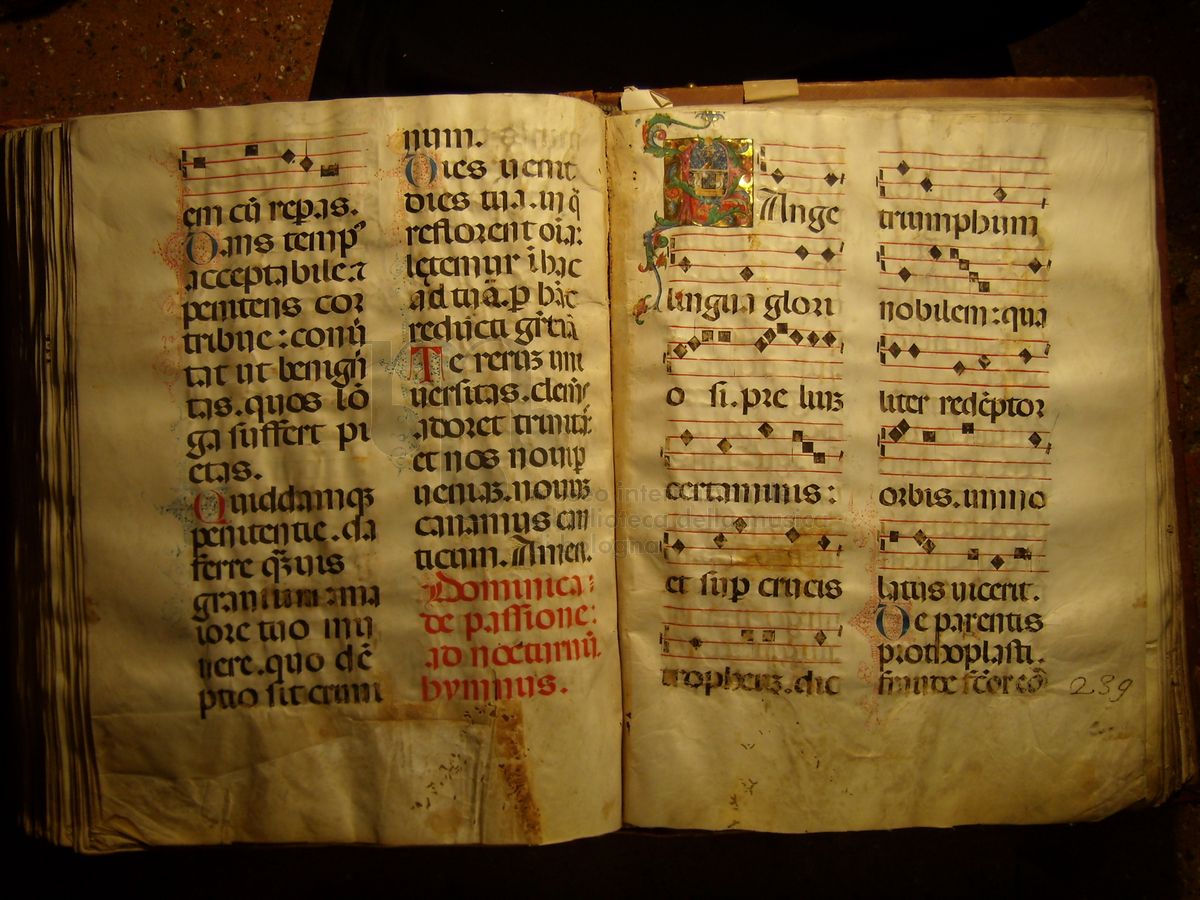 em cū repas.
Dans temp⁹
acceptabile: ⁊
penitens cor
tribue: conuī
tat ut benigni
tas. quos lō
ga suffert pi
etas.
Quiddamqꝫ
penitentie. da
ferre qꝫuis
grauium ma
iore tuo mu
nere. quo dē
ptio sit crimi
num.
Dies uenit
dies tua. in q̄
reflorent oīa:
lętemur ī hac
ad tuā. ꝑ hāc
reducti grātiā
Te rerūꝫ uni
uersitas. clemēs
adoret trinitas
et nos nouiꝑ
ueniaꝫ. nouuꝫ
canamus can
ticum. Amen.
Dominica
de passione:
ad nocturnū.
hymnus.
PAnge
lingua glori
o si. pre liuꝫ
certaminis:
et sup crucis
tropheuꝫ. dic
triumphum
nobilem: qua
liter redēptor
orbis. immo
latus uicerit.
De parentis
prothoplasti.
fraude
239